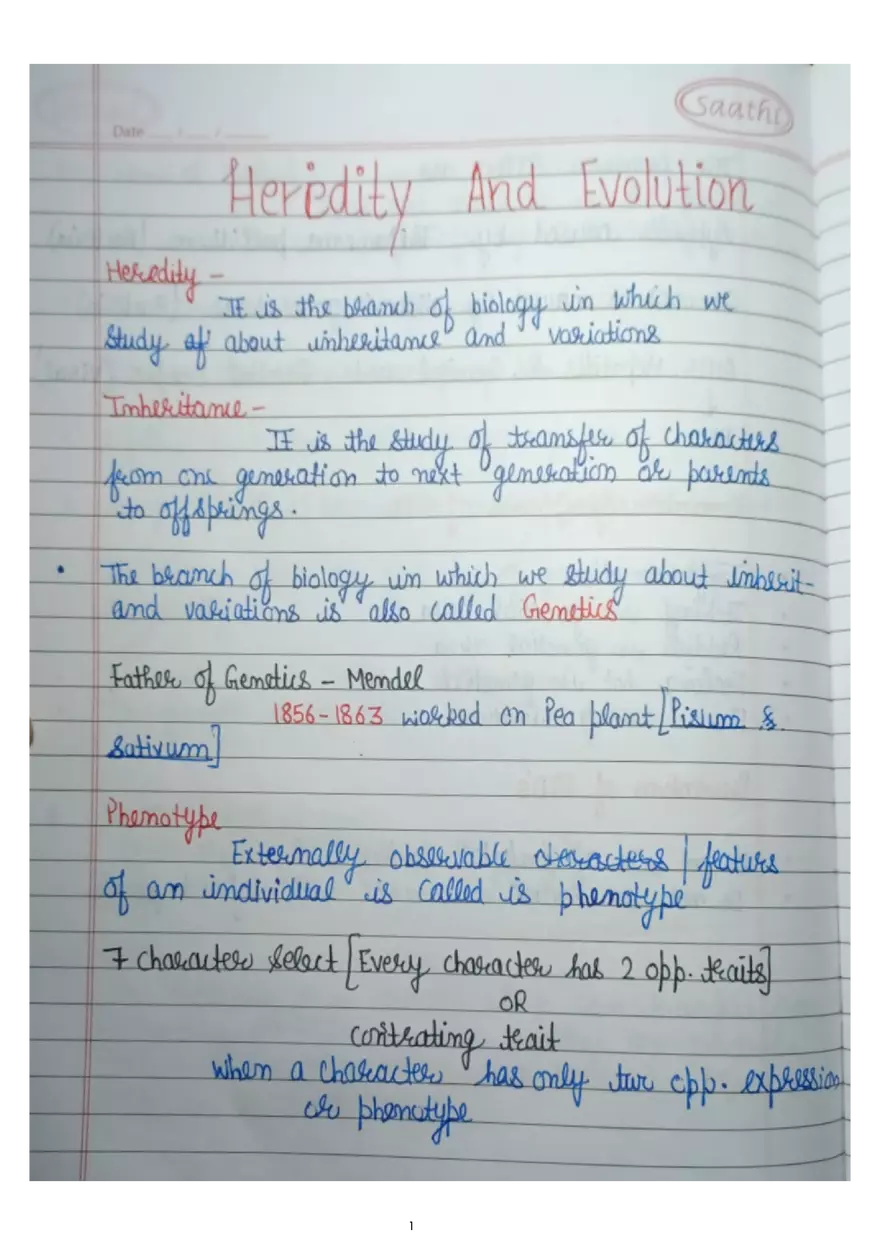 Saathi
Date / /
Heredity And Evolution
Heredity -
It is the branch of biology in which we
study of about inheritance and variations
Inheritance -
It is the study of transfer of characters
from one generation to next generation or parents
to offsprings.
• The branch of biology in which we study about inherit-
and variations is also called Genetics
Father of Genetics - Mendel
1856-1863 worked on Pea plant [Pisum s
Sativum]
Phenotype
Externally observable characters | featurs
of an individual is called is phenotype
7 character select [Every character has 2 opp. traits]
OR
contrating trait
when a character has only opp. expression
or phenotype
1